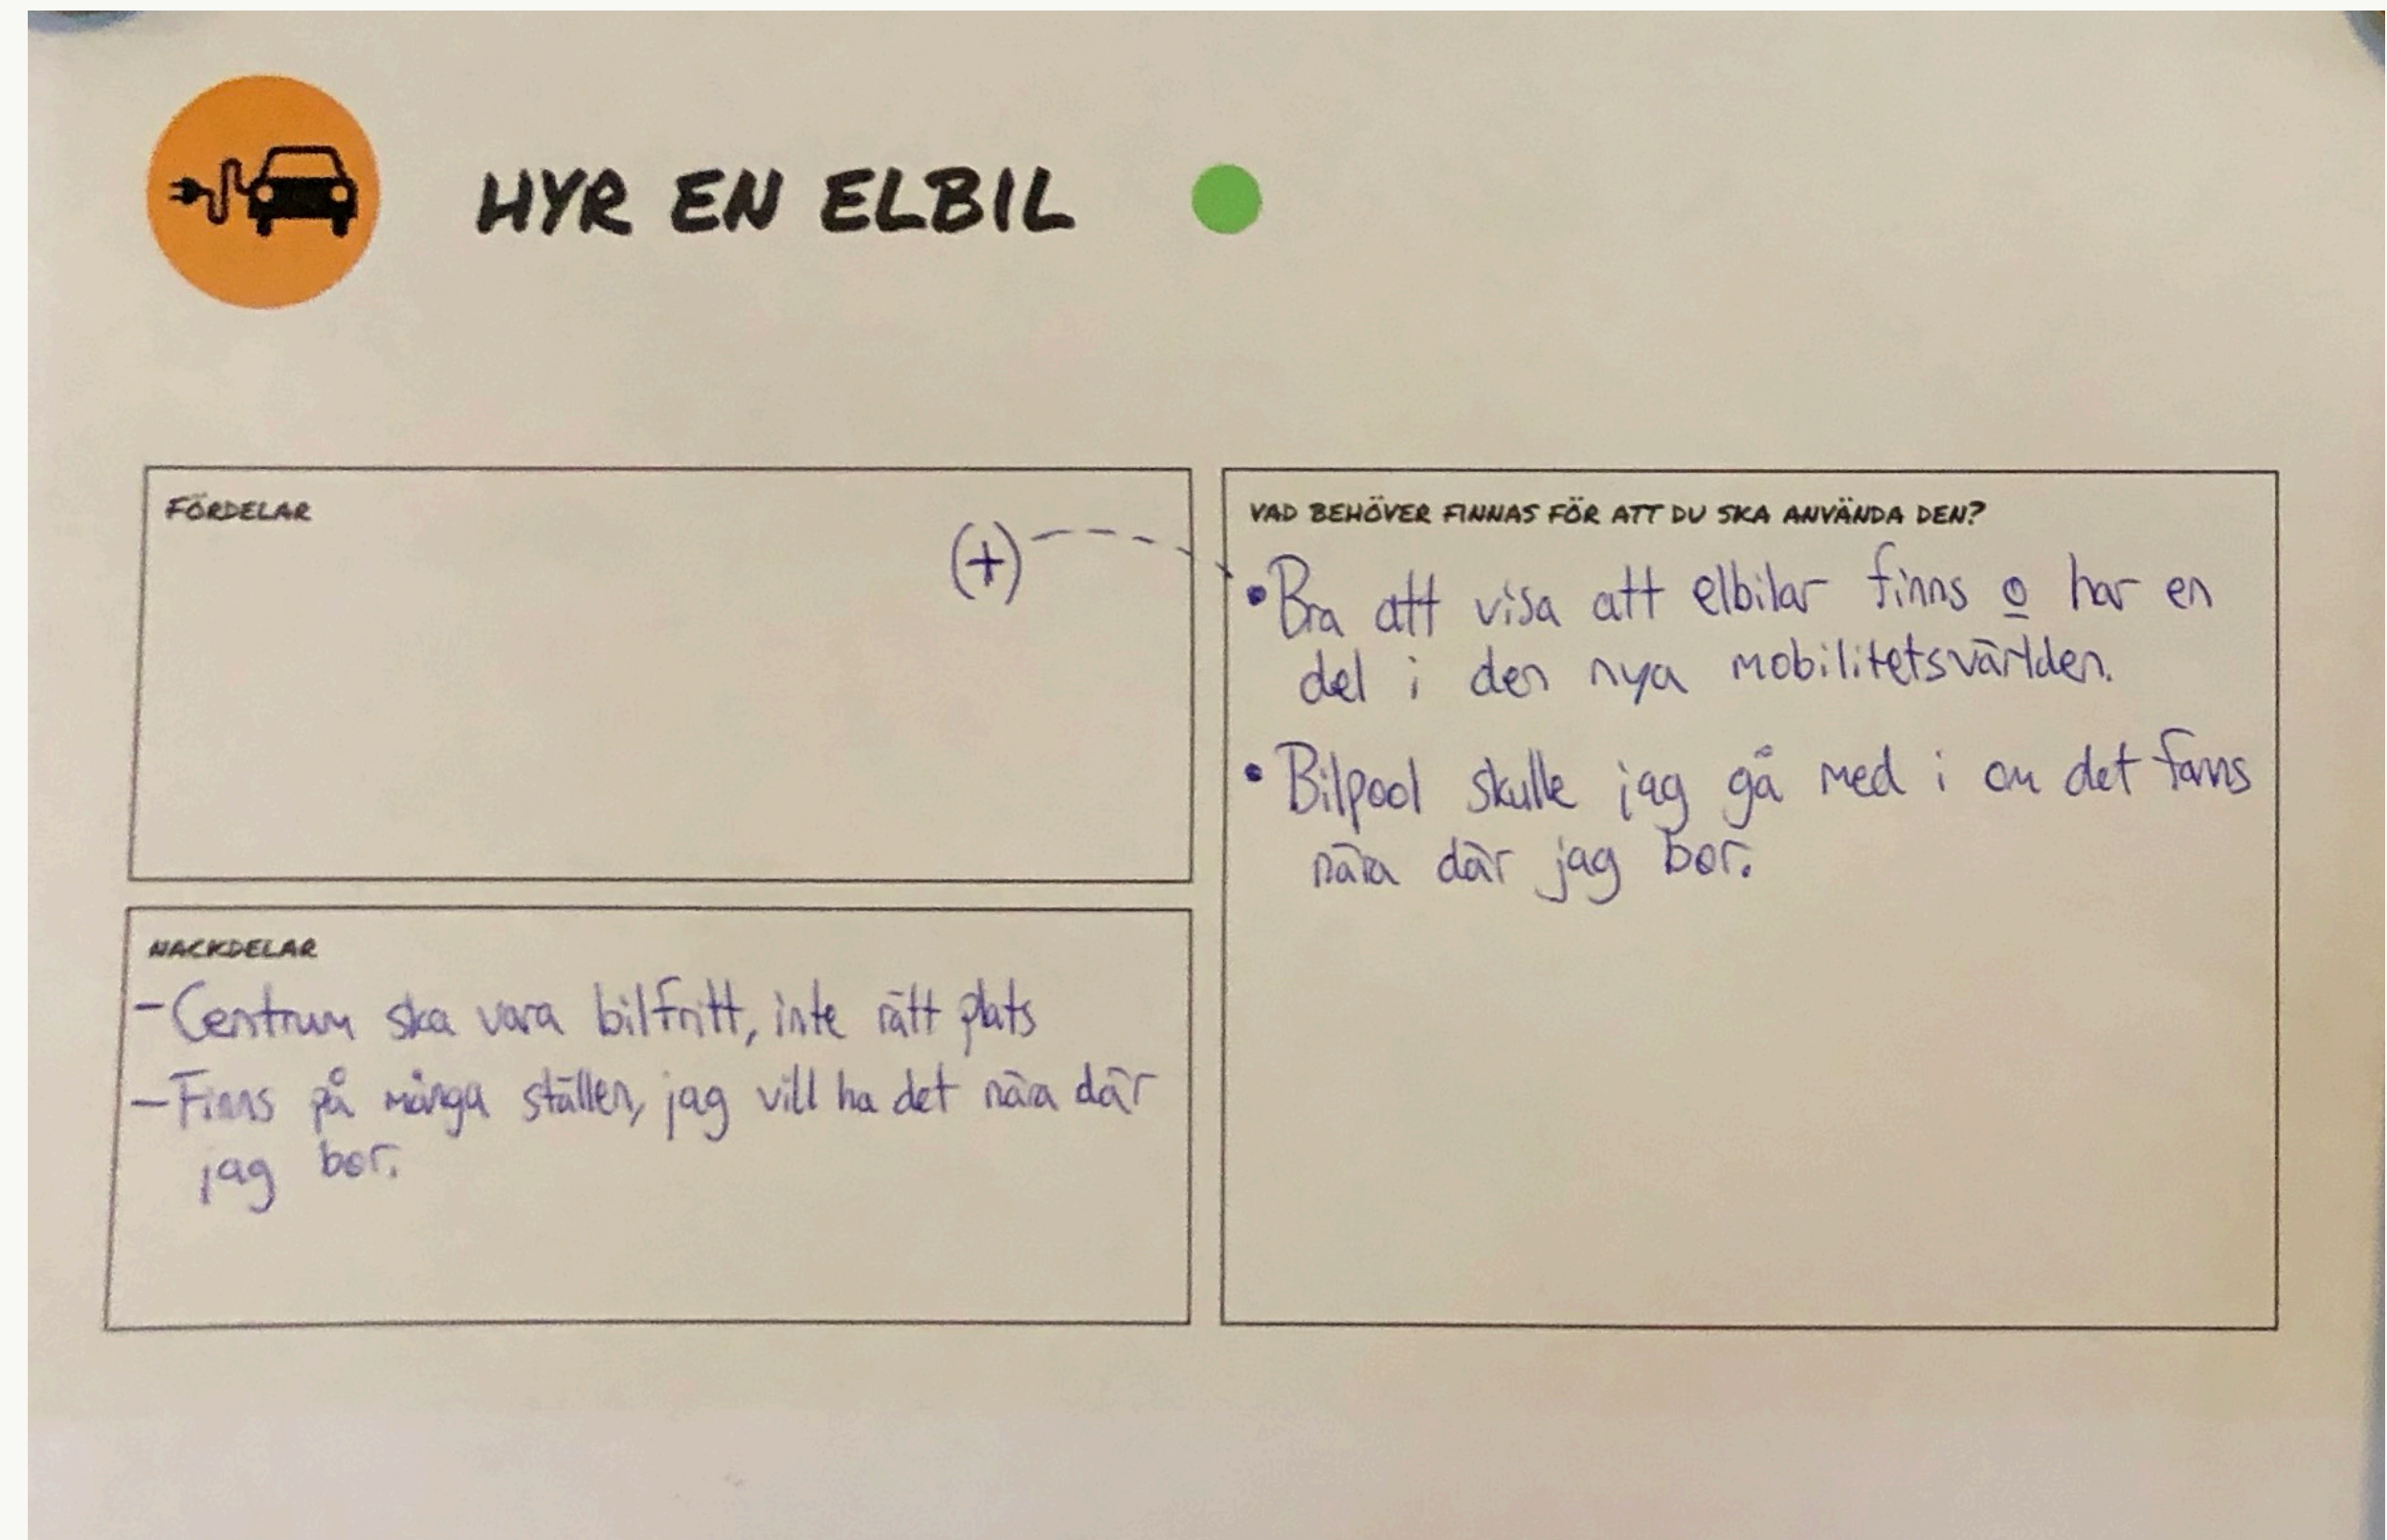 HYR EN ELBIL
FÖRDELAR
(+)
NACKDELAR
- Centrum ska vara bilfritt, inte rätt plats
- Finns på många ställen, jag vill ha det nära där
jag bor.
VAD BEHÖVER FINNAS FÖR ATT DU SKA ANVÄNDA DEN?
• Bra att visa att elbilar finns o har en
del i den nya mobilitetsvärlden.
• Bilpool skulle jag gå med i om det fanns
nära där jag bor.